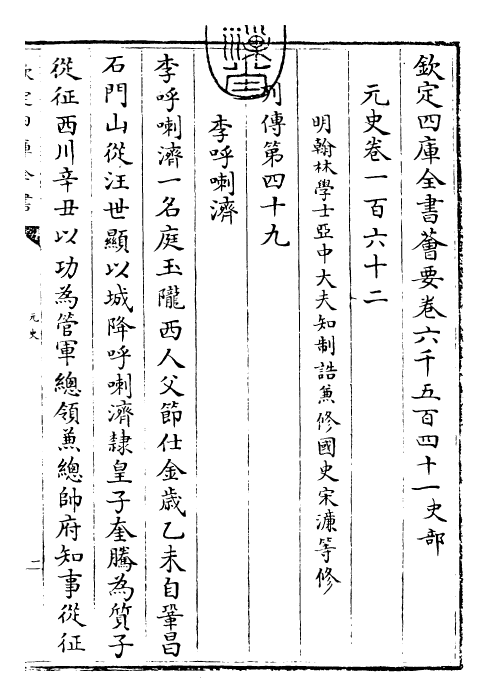 欽定四庫全書薈要卷六千五百四十一史部
元史卷一百六十二
明翰林學士亞中大夫知制誥兼修國史宋濂等修
列傳第四十九
李呼喇濟
李呼喇濟一名庭玉隴西人父節仕金歲乙未自鞏昌
石門山從汪世顯以城降呼喇濟隸皇子奎騰為質子
從征西川辛丑以功為管軍總領兼總帥府知事從征
欽定四庫全書
元史
二